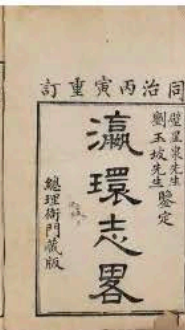 同治丙寅重訂
壁星泉先生
劉玉坡先生
鑒定
瀛環志畧
總理衙門藏版